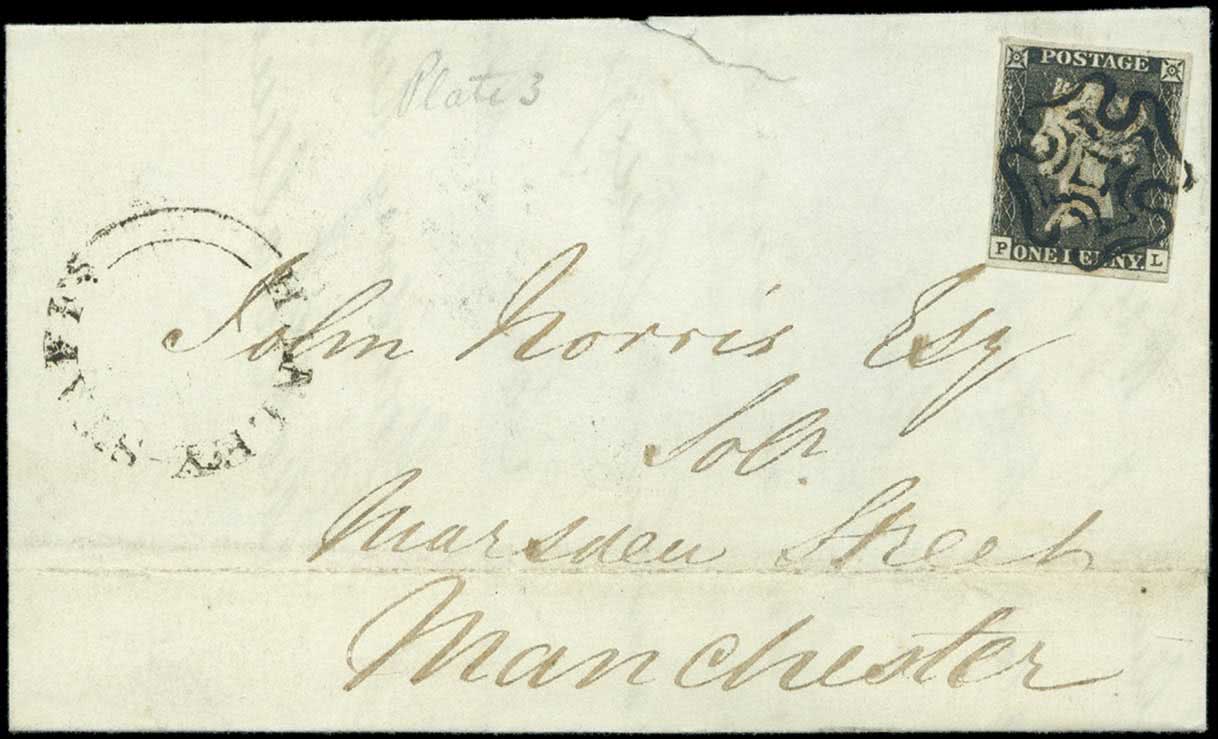 Plate 3
POSTAGE
P ONE PENNY L
HANLEY-STAFFS
John Norris Esq
Solr.
Marsden Street
Manchester